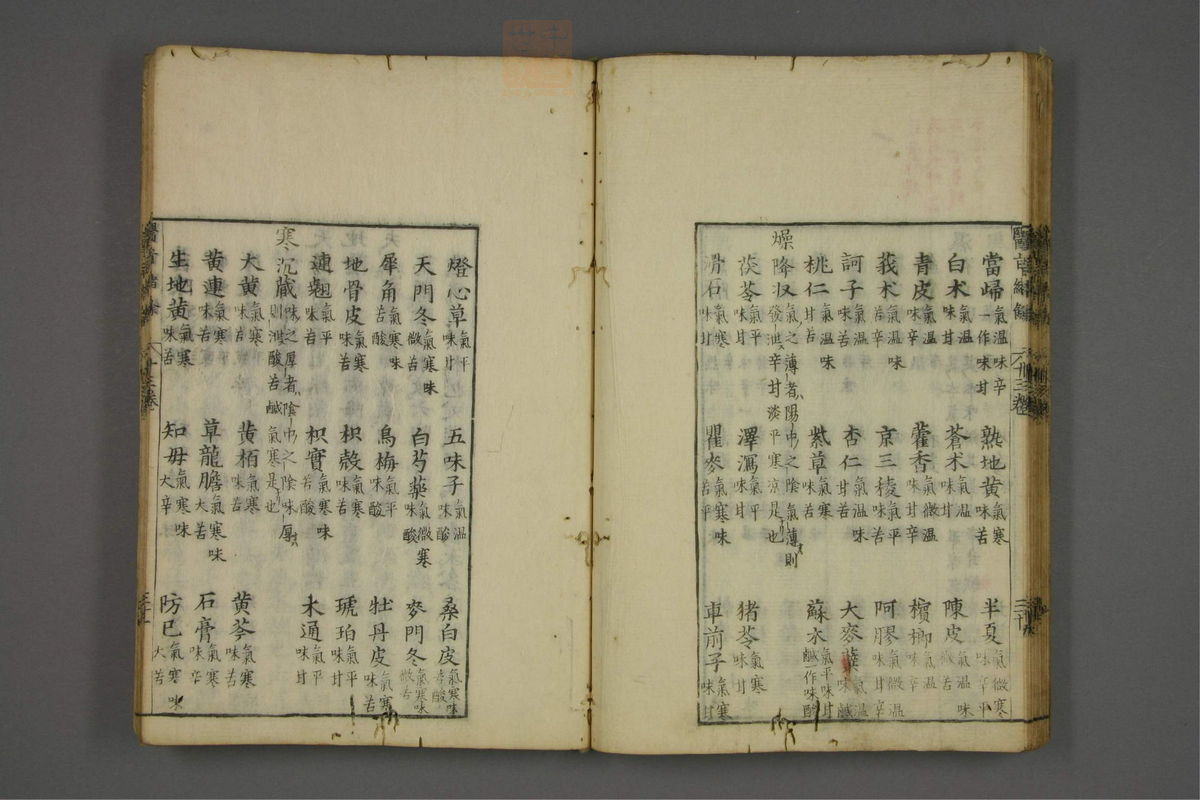 醫言緒餘 卅三卷
當歸氣溫味辛一作味甘 熟地黄氣寒味苦 半夏氣微寒味辛平
白术氣溫味甘 蒼术氣温味甘 陳皮氣溫味苦
青皮氣溫味辛 藿香氣微溫味甘辛 檳榔氣溫味辛
莪术氣温味苦辛 京三稜氣平味苦 阿膠氣微温味甘辛
訶子氣溫味苦 杏仁氣温味甘苦 大麥蘖氣溫味鹹
桃仁氣温味甘苦 紫草氣寒味苦 蘇木氣平味甘鹹一作味酸
燥降収氣之薄者陽中之陰氣薄則發泄辛甘淡平寒凉是也
茯苓氣平味甘 澤瀉氣平味甘 猪苓氣寒味甘
滑石氣寒味甘 瞿麥氣寒味苦平 車前子氣寒味甘
燈心草氣平味甘 五味子氣溫味酸 桑白皮氣寒味苦酸
天門冬氣寒味微苦 白芍藥氣微寒味酸 麥門冬氣寒味微苦
犀角氣寒味苦酸 烏梅氣平味酸 牡丹皮氣寒味苦
地骨皮氣寒味苦 枳殼氣寒味苦 琥珀氣平味甘
連翹氣平味苦 枳實氣寒味苦酸 木通氣平味甘
寒沉藏味之厚者陰中之陰味厚則泄酸苦鹹氣寒是也
大黄氣寒味苦 黄栢氣寒味苦 黄芩氣寒味苦
黄連氣寒味苦 草龍膽氣寒味大苦 石膏氣寒味辛
生地黄氣寒味苦 知母氣寒味大辛 防已氣寒味大苦